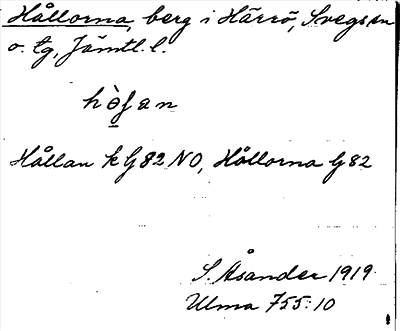 Hållorna, berg i Härrö, Svegs sn
o. tg, Jämtl. l.
Hållan k G82 NO, Hållorna G82
S. Åsander 1919
Ulma 755:10